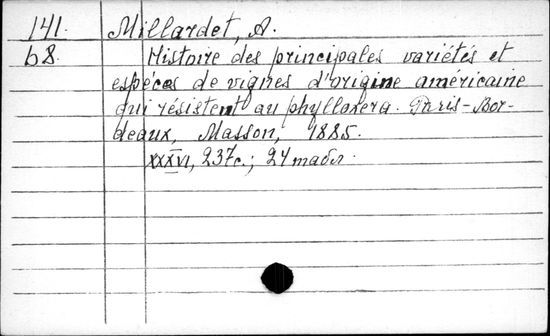 141. Millardet, A.
68. Histoire des principales variétés et
espèces de vignes d'origine américaine
qui résistent au phylloxera. Paris-Bor-
deaux, Masson, 1885.
XXXVI, 237с.; 24 табл.